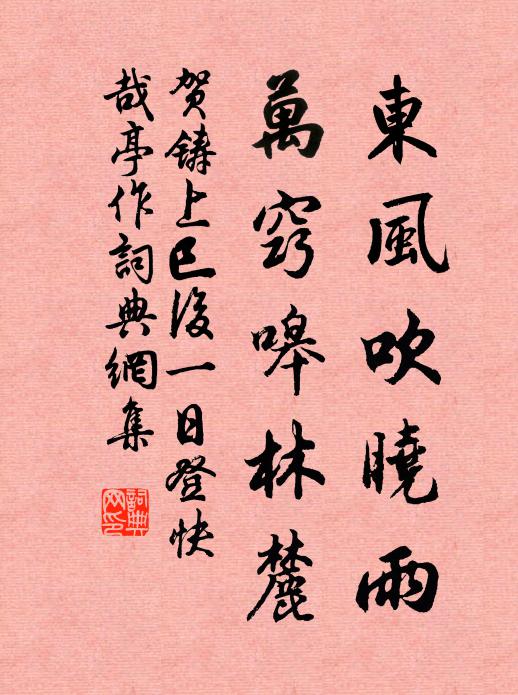 東風吹曉雨
萬竅嗥林麓
贺鑄上巳後一日登快
哉亭作詞典網集
詞典網印